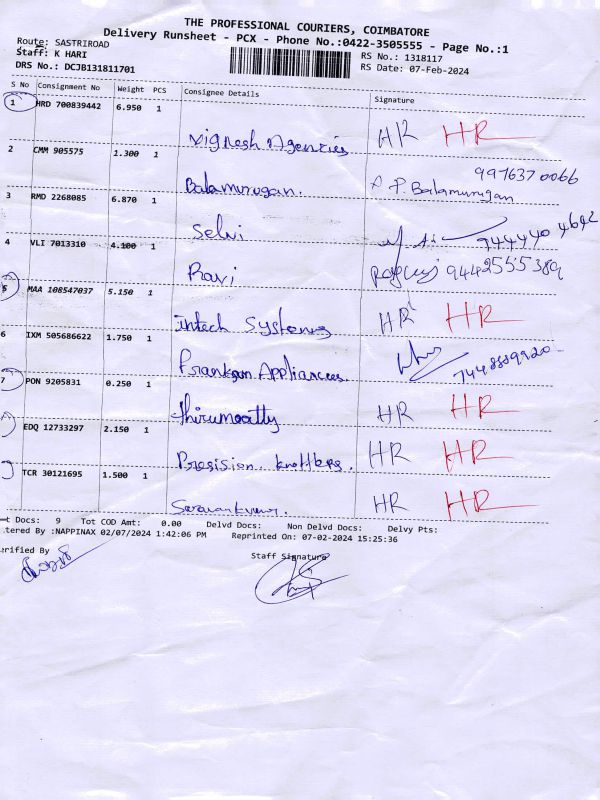 THE PROFESSIONAL COURIERS, COIMBATORE
Delivery Runsheet - PCX - Phone No.:0422-3505555 - Page No.:1
Route: SASTRIROAD
Staff: K HARI
DRS No.: DCJB131811701
RS No.: 1318117
RS Date: 07-Feb-2024
S No Consignment No Weight PCS Consignee Details Signature
1 HRD 700839442 6.950 1
Vignesh Agencies HR HR
2 CMM 905575 1.300 1
9976370066
Balamurugan. A P Balamurugan
3 RMD 2268085 6.870 1
Selvi 744440 4642
4 VLI 7013310 4.100 1
Ravi 9442555389
5 MAA 108547037 5.150 1
intech Systems HR HR
6 IXM 505686622 1.750 1
Appliances.
7 PON 9205831 0.250 1
thirumoatty HR HR
EDQ 12733297 2.150 1
Presision. HR HR
TCR 30121695 1.500 1
HR HR
t Docs: 9 Tot COD Amt: 0.00 Delvd Docs: Non Delvd Docs: Delvy Pts:
tered By :NAPPINAX 02/07/2024 1:42:06 PM Reprinted On: 07-02-2024 15:25:36
rified By Staff Signature